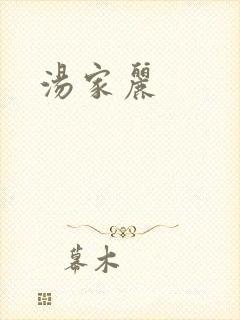 湯家麗
幕木